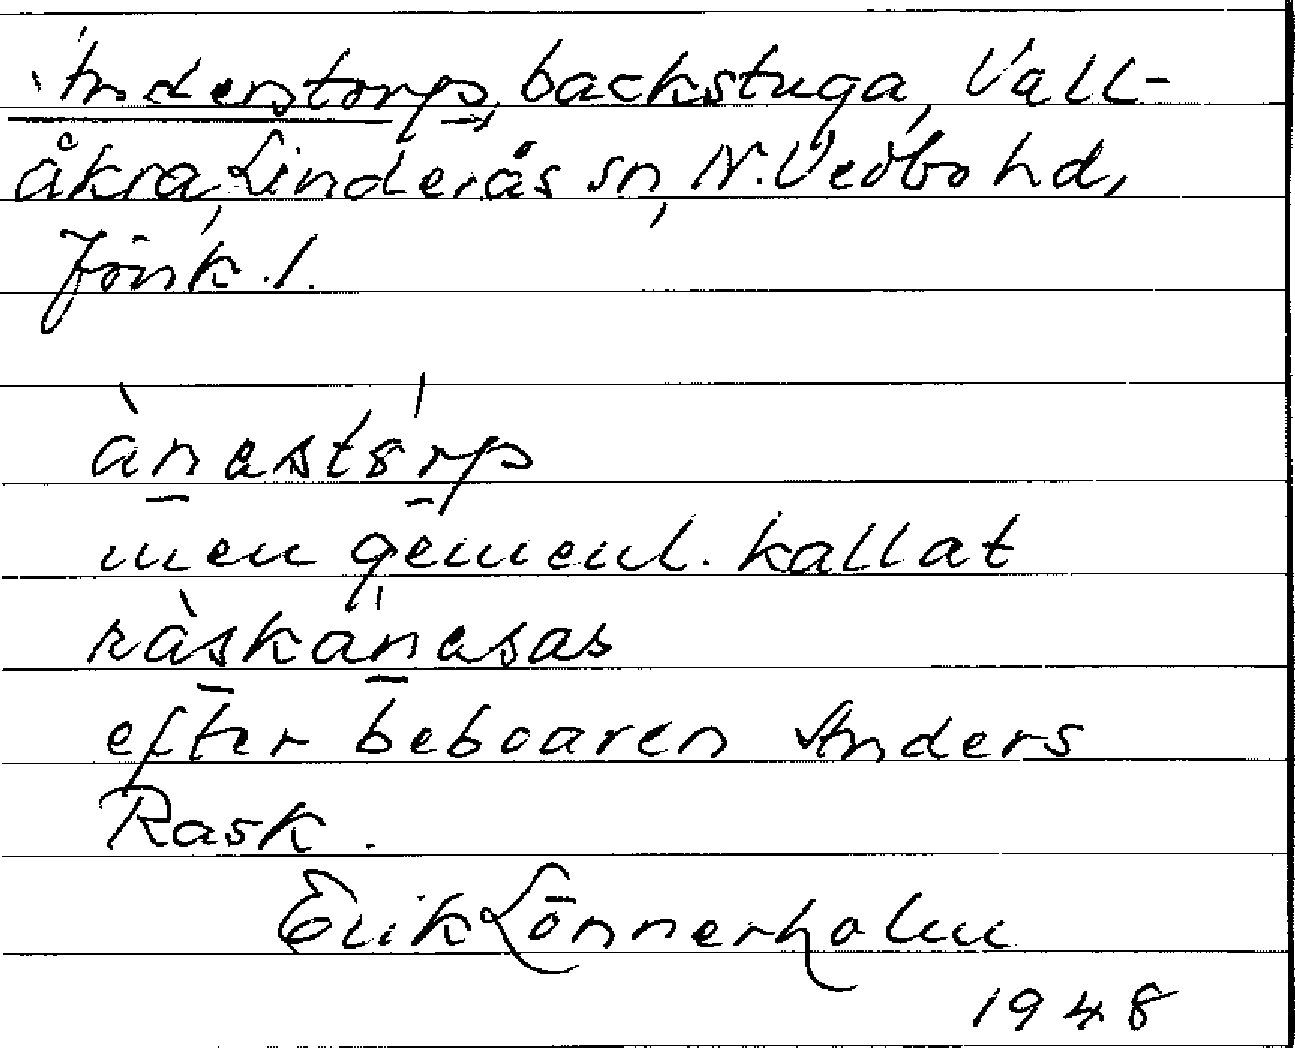 Anderstorp, backstuga, Vall-
åkra, Linderås sn, N. Vedbo hd,
Jönk. l.
ànastó̤rp
men gemenl. kallat
ràskánasas
efter beboaren Anders
Rask.
Erik Lönnerholm
1948